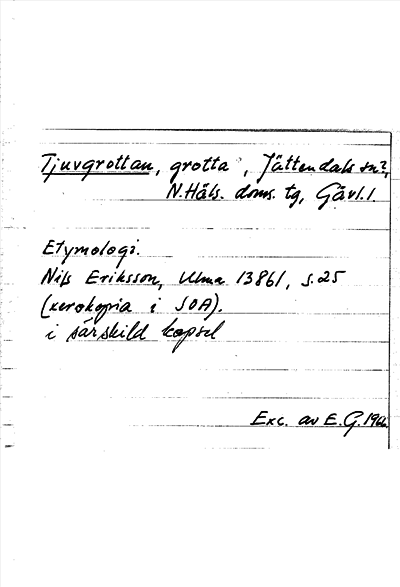 Tjuvgrottan, grotta?, Jättendals sn?,
N.Häls. doms. tg, Gävl.l.
Etymologi.
Nils Eriksson, Ulma 13861, s.25
(xerokopia i SOA).
i särskild kapsel
Exc. av E.G.